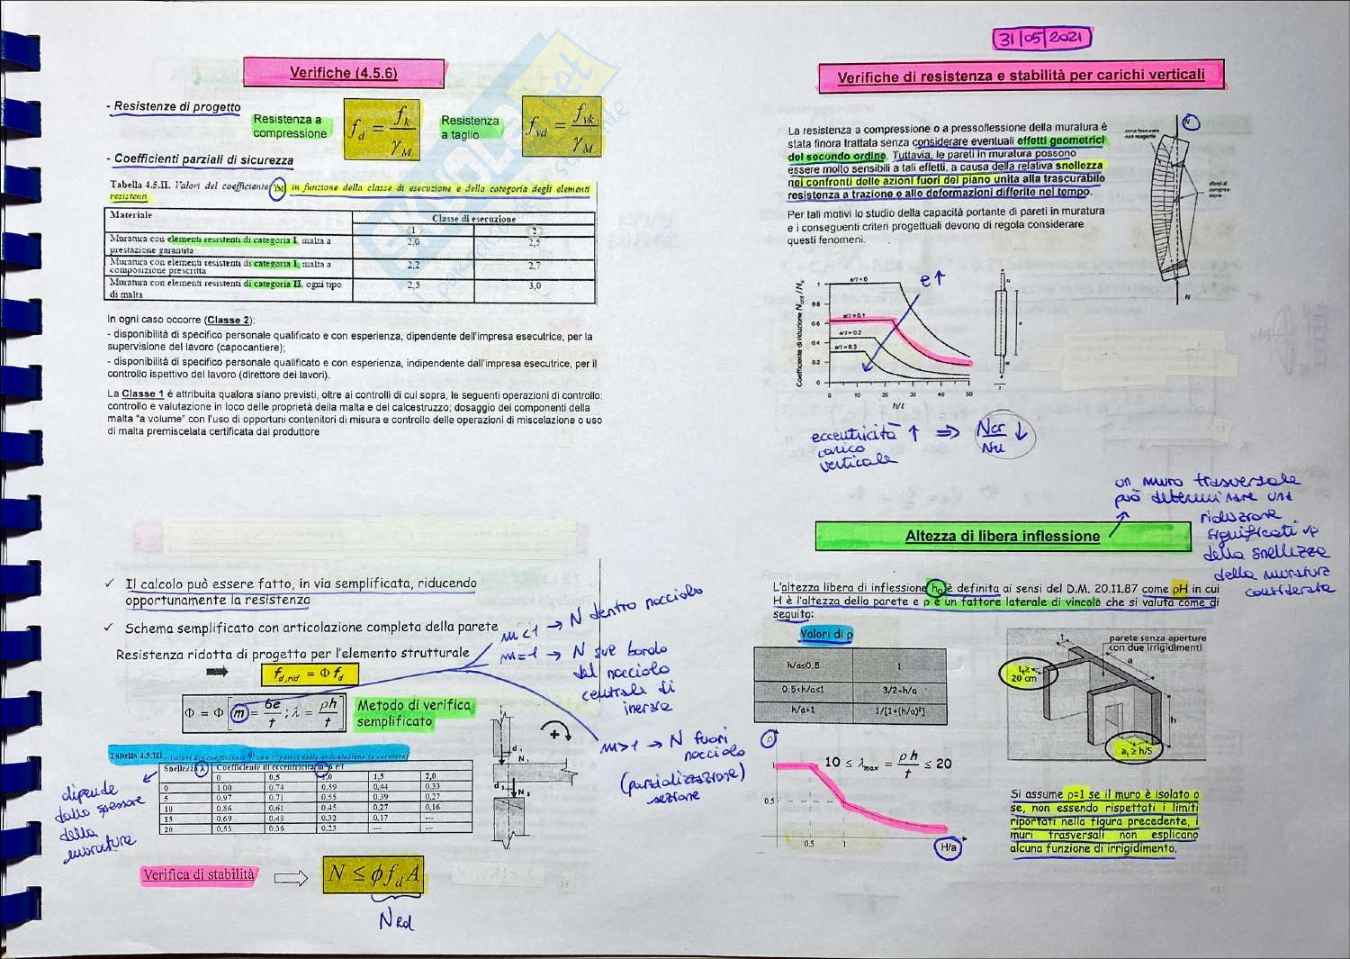 Verifiche (4.5.6)
- Resistenze di progetto
Resistenza a
compressione
f_d = f_k / γ_M
Resistenza
a taglio
f_vd = f_vk / γ_M
- Coefficienti parziali di sicurezza
Tabella 4.5.II. Valori del coefficiente γM in funzione della classe di esecuzione e della categoria degli elementi
resistenti
Materiale Classe di esecuzione
1 2
Muratura con elementi resistenti di categoria I, malta a
prestazione garantita 2,0 2,5
Muratura con elementi resistenti di categoria I, malta a
composizione prescritta 2,2 2,7
Muratura con elementi resistenti di categoria II, ogni tipo
di malta 2,5 3,0
In ogni caso occorre (Classe 2):
- disponibilità di specifico personale qualificato e con esperienza, dipendente dell'impresa esecutrice, per la
supervisione del lavoro (capocantiere);
- disponibilità di specifico personale qualificato e con esperienza, indipendente dall'impresa esecutrice, per il
controllo ispettivo del lavoro (direttore dei lavori).
La Classe 1 è attribuita qualora siano previsti, oltre ai controlli di cui sopra, le seguenti operazioni di controllo:
controllo e valutazione in loco delle proprietà della malta e del calcestruzzo; dosaggio dei componenti della
malta "a volume" con l'uso di opportuni contenitori di misura e controllo delle operazioni di miscelazione o uso
di malta premiscelata certificata dal produttore
✓ Il calcolo può essere fatto, in via semplificata, riducendo
opportunamente la resistenza
✓ Schema semplificato con articolazione completa della parete
Resistenza ridotta di progetto per l'elemento strutturale
f_d,rid = Φ f_d
Φ = Φ [m = 6e / t ; λ = ρh / t]
Metodo di verifica
semplificato
m<1 → N dentro nocciolo
m=1 → N sul bordo
del nocciolo
centrale di
inerzia
m>1 → N fuori
nocciolo
(parzializzazione)
sezione
Tabella 4.5.III
Snellezza λ Coefficiente di eccentricità m = 6 e/t
0 0,5 1,0 1,5 2,0
0 1,00 0,74 0,59 0,44 0,33
5 0,97 0,71 0,55 0,39 0,27
10 0,86 0,61 0,45 0,27 0,16
15 0,69 0,48 0,32 0,17 ---
20 0,53 0,36 0,23 --- ---
dipende
dallo spessore
della
muratura
d₁
N₁
d₂
N₂
+
Verifica di stabilità
N ≤ φ f_d A
N Rd
31/05/2021
Verifiche di resistenza e stabilità per carichi verticali
La resistenza a compressione o a pressoflessione della muratura è
stata finora trattata senza considerare eventuali effetti geometrici
del secondo ordine. Tuttavia, le pareti in muratura possono
essere molto sensibili a tali effetti, a causa della relativa snellezza
nei confronti delle azioni fuori del piano unita alla trascurabile
resistenza a trazione o alle deformazioni differite nel tempo.
Per tali motivi lo studio della capacità portante di pareti in muratura
e i conseguenti criteri progettuali devono di regola considerare
questi fenomeni.
N
N
Coefficiente di riduzione N_cr / N_u
1
0.8
0.6
0.4
0.2
0
e/t = 0
e/t = 0.1
e/t = 0.2
e/t = 0.3
e↑
0 10 20 30 40 50
h/t
eccentricità ↑ ⇒ Ncr / Nu ↓
carico
verticale
un muro trasversale
può determinare una
riduzione
significativa
della snellezza
della muratura
considerata
Altezza di libera inflessione
L'altezza libera di inflessione h₀ è definita ai sensi del D.M. 20.11.87 come ρH in cui
H è l'altezza della parete e ρ è un fattore laterale di vincolo che si valuta come di
seguito:
Valori di ρ
h/a≤0.5 1
0.5<h/a≤1 3/2-h/a
h/a>1 1/[1+(h/a)²]
parete senza aperture
con due irrigidimenti
t
a
h
20 cm
a₁ ≥ h/5
ρ
1
0.5
0.5 1
H/a
10 ≤ λ_max = ρh / t ≤ 20
Si assume ρ=1 se il muro è isolato o
se, non essendo rispettati i limiti
riportati nella figura precedente, i
muri trasversali non esplicano
alcuna funzione di irrigidimento.